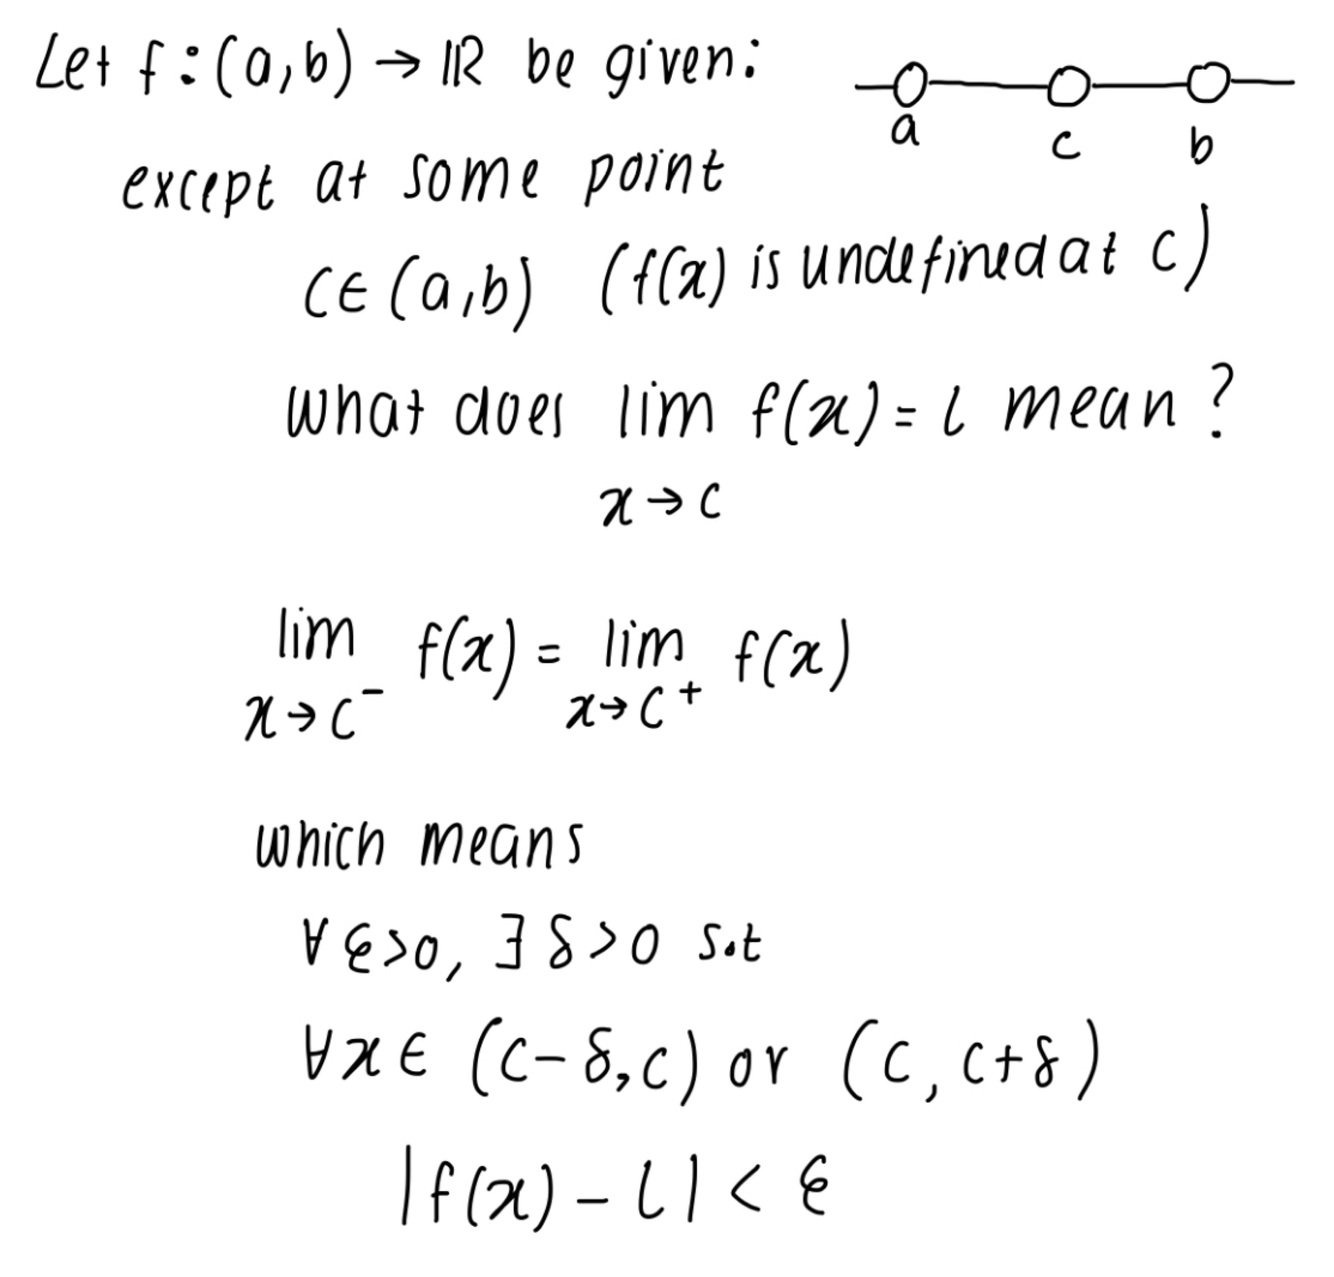 Let f:(a,b) → ℝ be given:
a c b
except at some point
c∈(a,b) (f(x) is undefined at c)
what does lim f(x) = l mean?
x→c
lim f(x) = lim f(x)
x→c⁻ x→c⁺
which means
∀ε>0, ∃δ>0 s.t
∀x∈ (c-δ,c) or (c, c+δ)
|f(x) - l| < ε